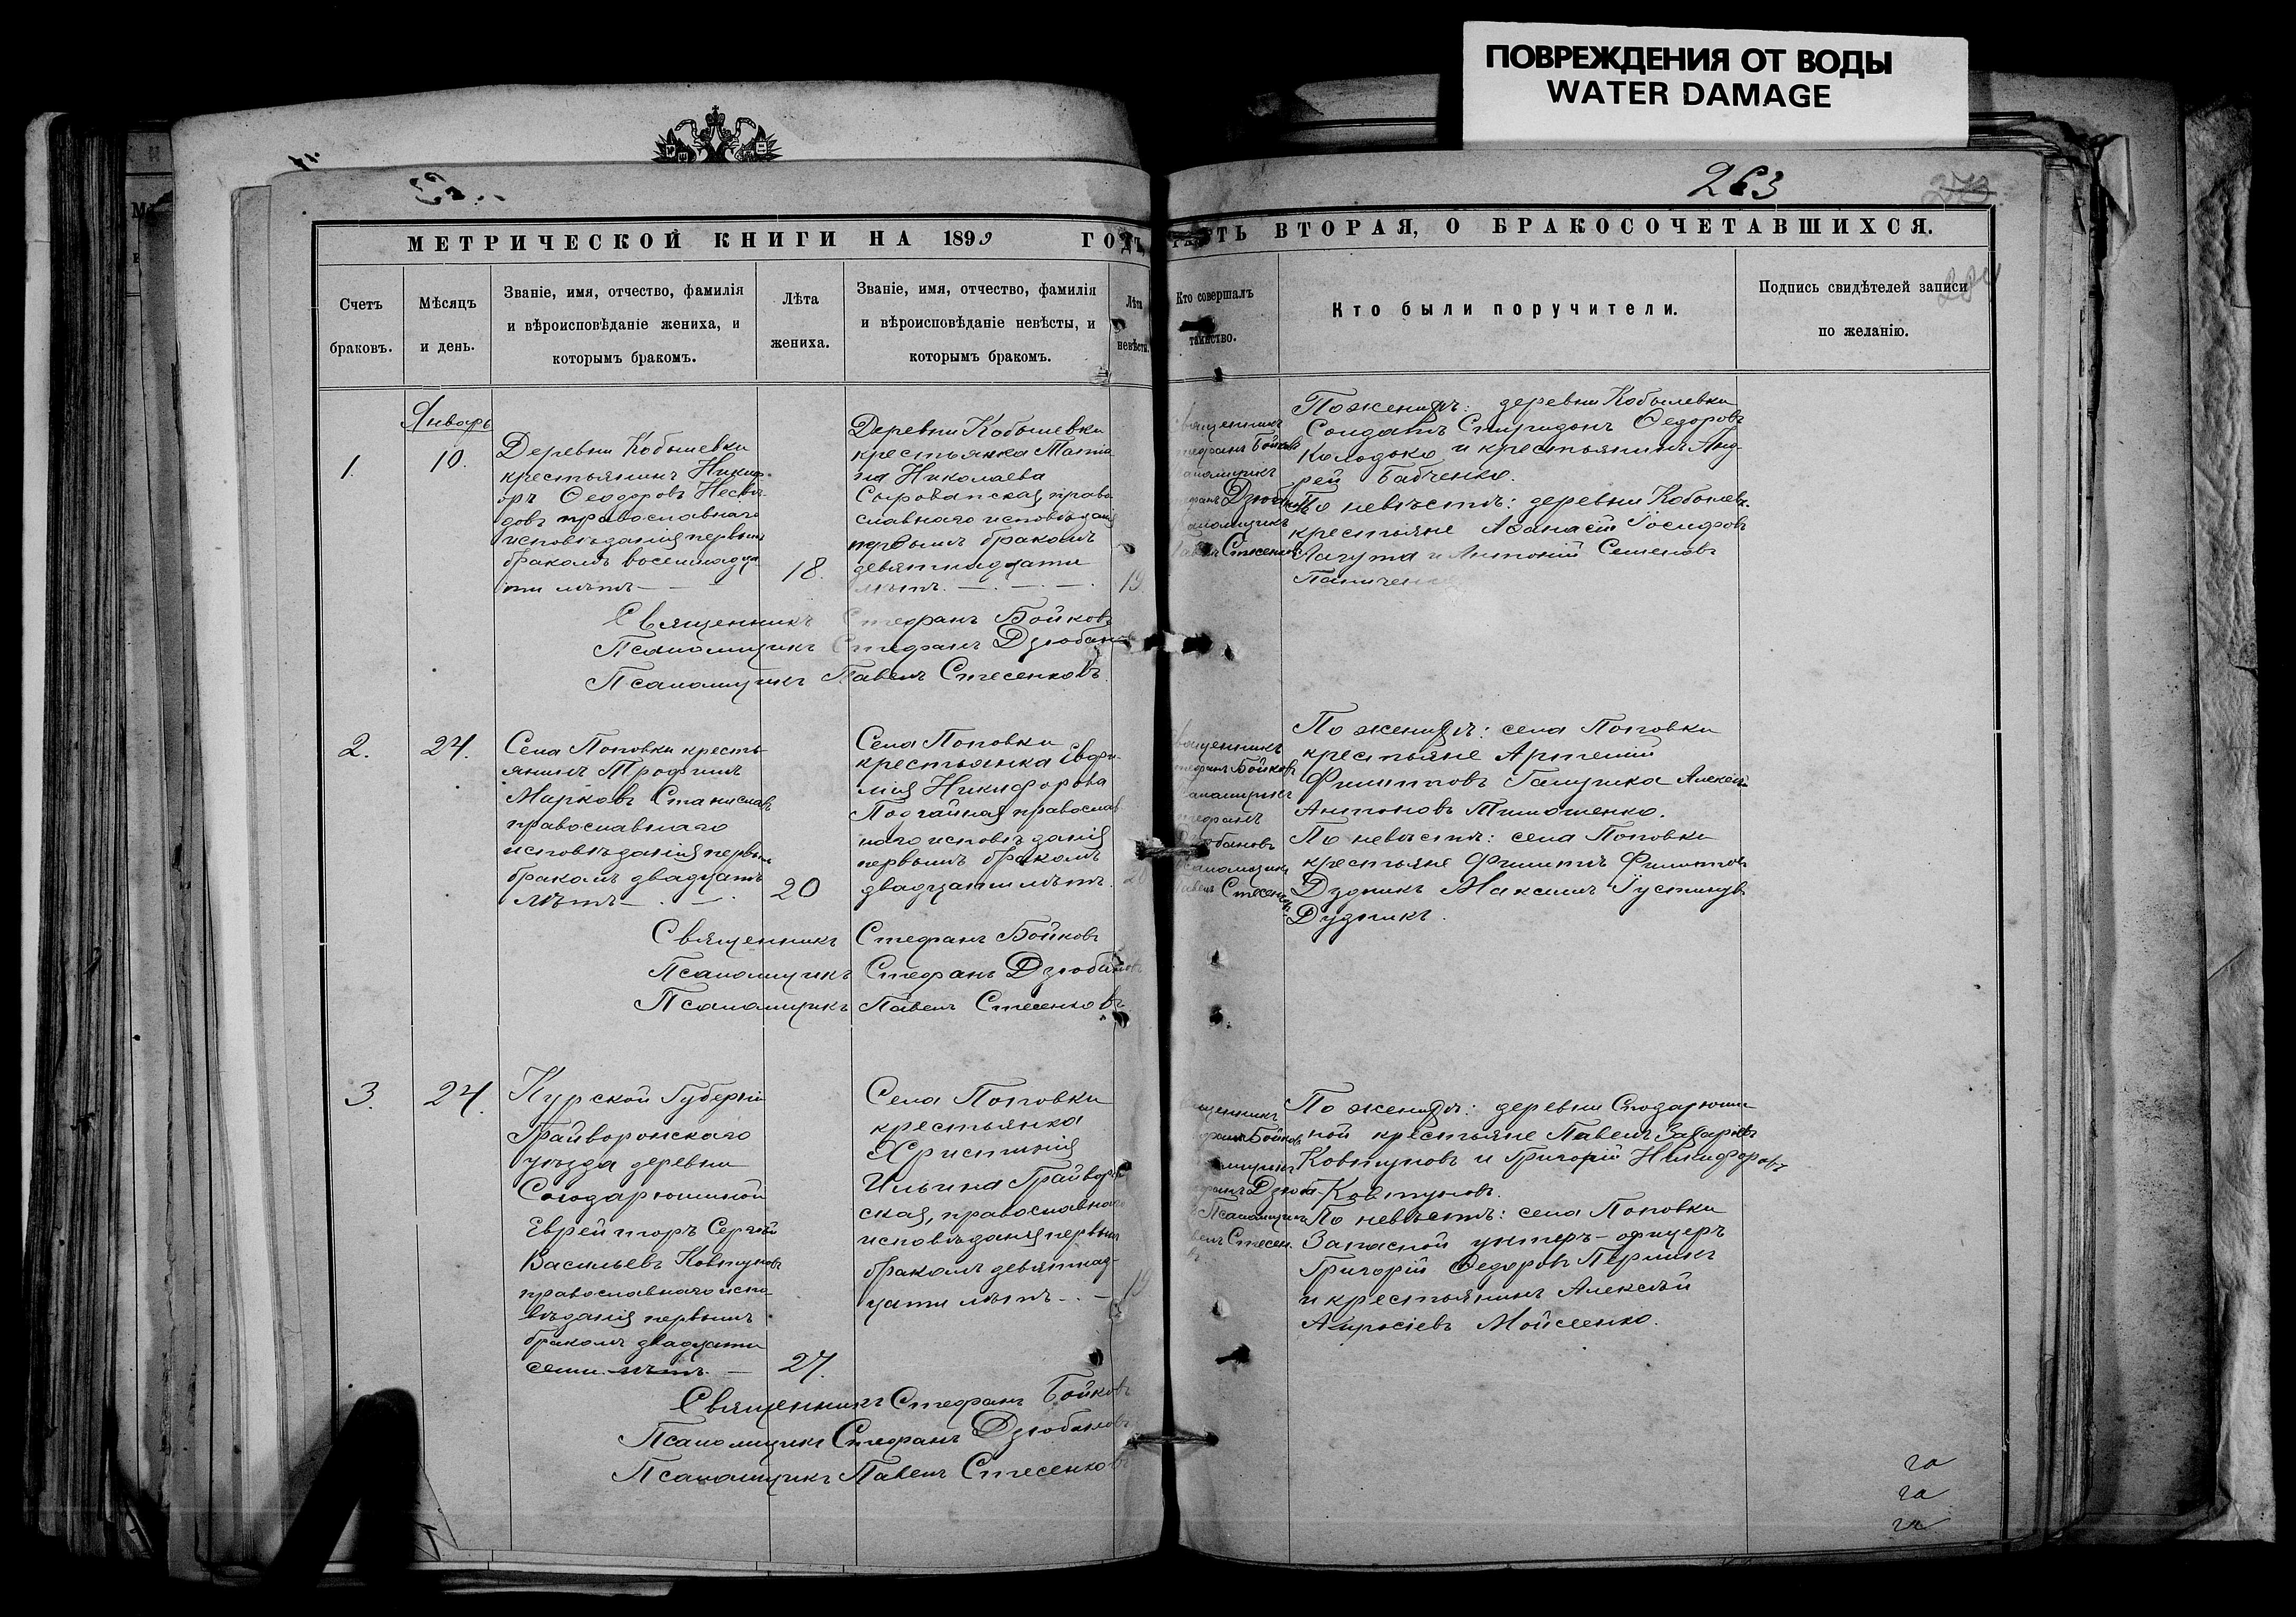 ПОВРЕЖДЕНИЯ ОТ ВОДЫ
WATER DAMAGE
263
МЕТРИЧЕСКОЙ КНИГИ НА 1899 ГОДЪ,
ВТОРАЯ, О БРАКОСОЧЕТАВШИХСЯ.
Счетъ
браковъ.
Мѣсяцъ
и день.
Званіе, имя, отчество, фамилія
и вѣроисповѣданіе жениха, и
которымъ бракомъ.
Лѣта
жениха.
Званіе, имя, отчество, фамилія
и вѣроисповѣданіе невѣсты, и
которымъ бракомъ.
Лѣта
невѣсты.
Кто совершалъ
таинство.
Кто были поручители.
Подпись свидѣтелей записи
по желанію.
Январь
1.
10.
Деревни Кобылевки
крестьянинъ Никиф-
оръ Ѳеодоровъ
православнаго
исповѣданія первымъ
бракомъ восемнадца
ти лѣтъ
18.
Деревни Кобылевки
крестьянка Татія
на Николаева
Сыроватская право
славнаго исповѣданія
первымъ бракомъ
девятнадцати
лѣтъ.
19.
Бойковъ
Дзюбан
Стесенковъ
По женихѣ: деревни Кобылевки
Солдатъ Спиридонъ Ѳедоровъ
Колодко и крестьянинъ Анд-
рей Бабченко.
По невѣстѣ: деревни Кобылев.
крестьяне Аѳанасій Іосифовъ
Лагута и Антоній Семеновъ
Священникъ Стефанъ Бойковъ
Псаломщикъ Стефанъ Дзюбан
Псаломщикъ Павелъ Стесенковъ.
2.
24.
Села Поповки кресть-
янинъ Трофимъ
Марковъ Станислав
православнаго
исповѣданія первымъ
бракомъ двадцать
лѣтъ
20
Села Поповки
крестьянка Евфи-
мія Никифорова
Подчайная православ
наго исповѣданія
первымъ бракомъ
двадцати лѣтъ.
20
Бойковъ
Стесенк.
По женихѣ: села Поповки
крестьяне Артемій
Филипповъ Галушка Алексѣй
Антоновъ Тимошенко.
По невѣстѣ: села Поповки
крестьяне Филиппъ Филиппов
Дудникъ Максимъ Іустинов
Дудникъ.
Священникъ Стефанъ Бойковъ
Псаломщикъ Стефанъ Дзюбановъ
Псаломщикъ Павелъ Стесенковъ
3.
24.
Курской Губерніи
Грайворонскаго
уѣзда деревни
Ефрейторъ Сергѣй
Васильевъ Ковтуновъ
православнаго испо
вѣданія первымъ
бракомъ двадцати
семи лѣтъ.
27.
Села Поповки
крестьянка
Христинія
Ильина Грайворон
ская, православнаго
исповѣданія первымъ
бракомъ девятнад-
цати лѣтъ
19
Бойковъ
Дзюба
Псаломщикъ
Стесен.
По женихѣ: деревни
ной крестьяне Павелъ Захаріевъ
Ковтуновъ и Григорій Никифоровъ
Ковтуновъ.
По невѣстѣ: села Поповки
Запасной унтеръ-офицеръ
Григорій Ѳедоровъ Перликъ
и крестьянинъ Алексѣй
Мойсеенко.
Священникъ Стефанъ Бойковъ
Псаломщикъ Стефанъ Дзюбановъ
Псаломщикъ Павелъ Стесенковъ